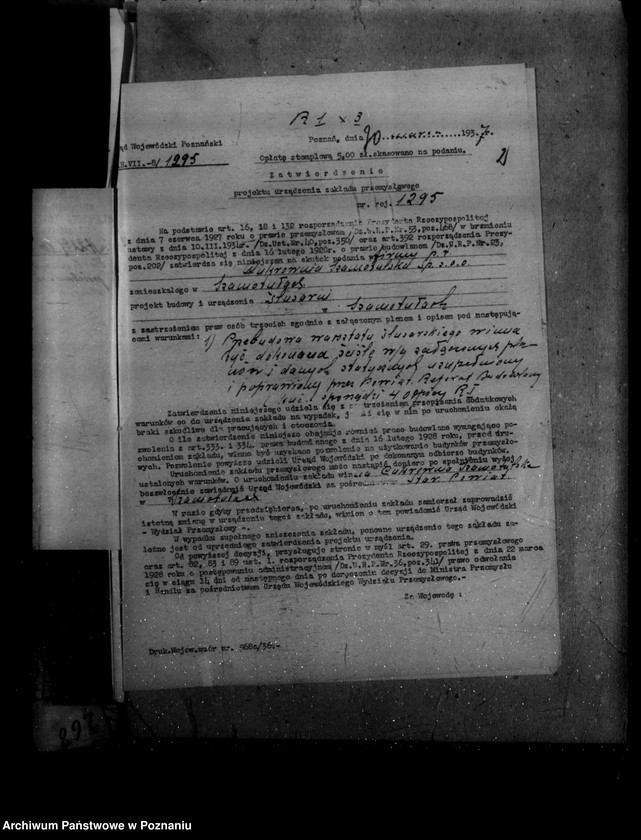 R 1 x 3
Poznań, dnia 30 marca 1937r.
ąd Wojewódzki Poznański
H.VII.-8/1295
Opłatę stemplową 5,00 zł.skasowano na podaniu.
2)
Zatwierdzenie
projektu urządzenia zakładu przemysłowego
nr. rej. 1295
Na podstawie art. 16, 18 i 132 rozporządzenia Prezydenta Rzeczypospolitej
z dnia 7 czerwca 1927 roku o prawie przemysłowem /Dz.U.R.P.Nr.53,poz.468/ w brzmieniu
ustawy z dnia 10.III.1934r. /Dz.Ust.Nr.40,poz.350/ oraz art.392 rozporządzenia Prezy-
denta Rzeczypospolitej z dnia 16 lutego 1928r. o prawie budowlanem /Dz.U.R.P.Nr.23,
poz.202/ zatwierdza się niniejszem na skutek podania firmy p.f.
Cukrownia Szamotulska Sp. z o.o
zamieszkałego w Szamotułach
projekt budowy i urządzenia ślusarni
w Szamotułach
z zastrzeżeniem praw osób trzecich zgodnie z załączonym planem i opisem pod następują-
cemi warunkami: 1) Przebudowa warsztatu ślusarskiego winna
być dokonana ściśle w/g załączonych pla-
nów i danych statycznych uzupełniony
i poprawiony przez Powiat. Referat Budowlany
Zatwierdzenia niniejszego udziela się z zastrzeżeniem przepisania dodatkowych
warunków co do urządzenia zakładu na wypadek, j się w nim po uruchomieniu okażą
braki szkodliwe dla pracujących i otoczenia.
O ile zatwierdzenie niniejsze obejmuje również prace budowlane wymagające po-
zwolenia z art.333. i 334. prawa budowlanego z dnia 16 lutego 1928 roku, przed uru-
chomieniem zakładu, winno być uzyskane pozwolenie na użytkowanie budynków przemysło-
wych. Pozwolenie powyższe udzieli Urząd Wojewódzki po dokonanym odbiorze budynków.
Uruchomienie zakładu przemysłowego może nastąpić dopiero po spełnieniu wyżej
ustalonych warunków. O uruchomieniu zakładu winna Cukrownia Szamotulska
bezzwłocznie zawiadomić Urząd Wojewódzki za pośrednictwem Star. Powiat.
w Szamotułach
W razie gdyby przedsiębiorca, po uruchomieniu zakładu zamierzał zaprowadzić
istotną zmianę w urządzeniu tegoż zakładu, winien o tem powiadomić Urząd Wojewódzki
- Wydział Przemysłowy -.
W wypadku zupełnego zniszczenia zakładu, ponowne urządzenie tego zakładu za-
leżne jest od uprzedniego zatwierdzenia projektu urządzenia.
Od powyższej decyzji, przysługuje stronie w myśl art. 29. prawa przemysłowego
oraz art. 82, 83 i 89 ust. 1. rozporządzenia Prezydenta Rzeczypospolitej z dnia 22 marca
1928 roku o postępowaniu administracyjnem /Dz.U.R.P.Nr.36,poz.341/ prawo odwołania
się w ciągu 14 dni od następnego dnia po doręczeniu decyzji do Ministra Przemysłu
i Handlu za pośrednictwem Urzędu Wojewódzkiego Wydziału Przemysłowego.-
Za Wojewodę :
Druk.Wojew.wzór nr. 968a/36.-
268
Archiwum Państwowe w Poznaniu